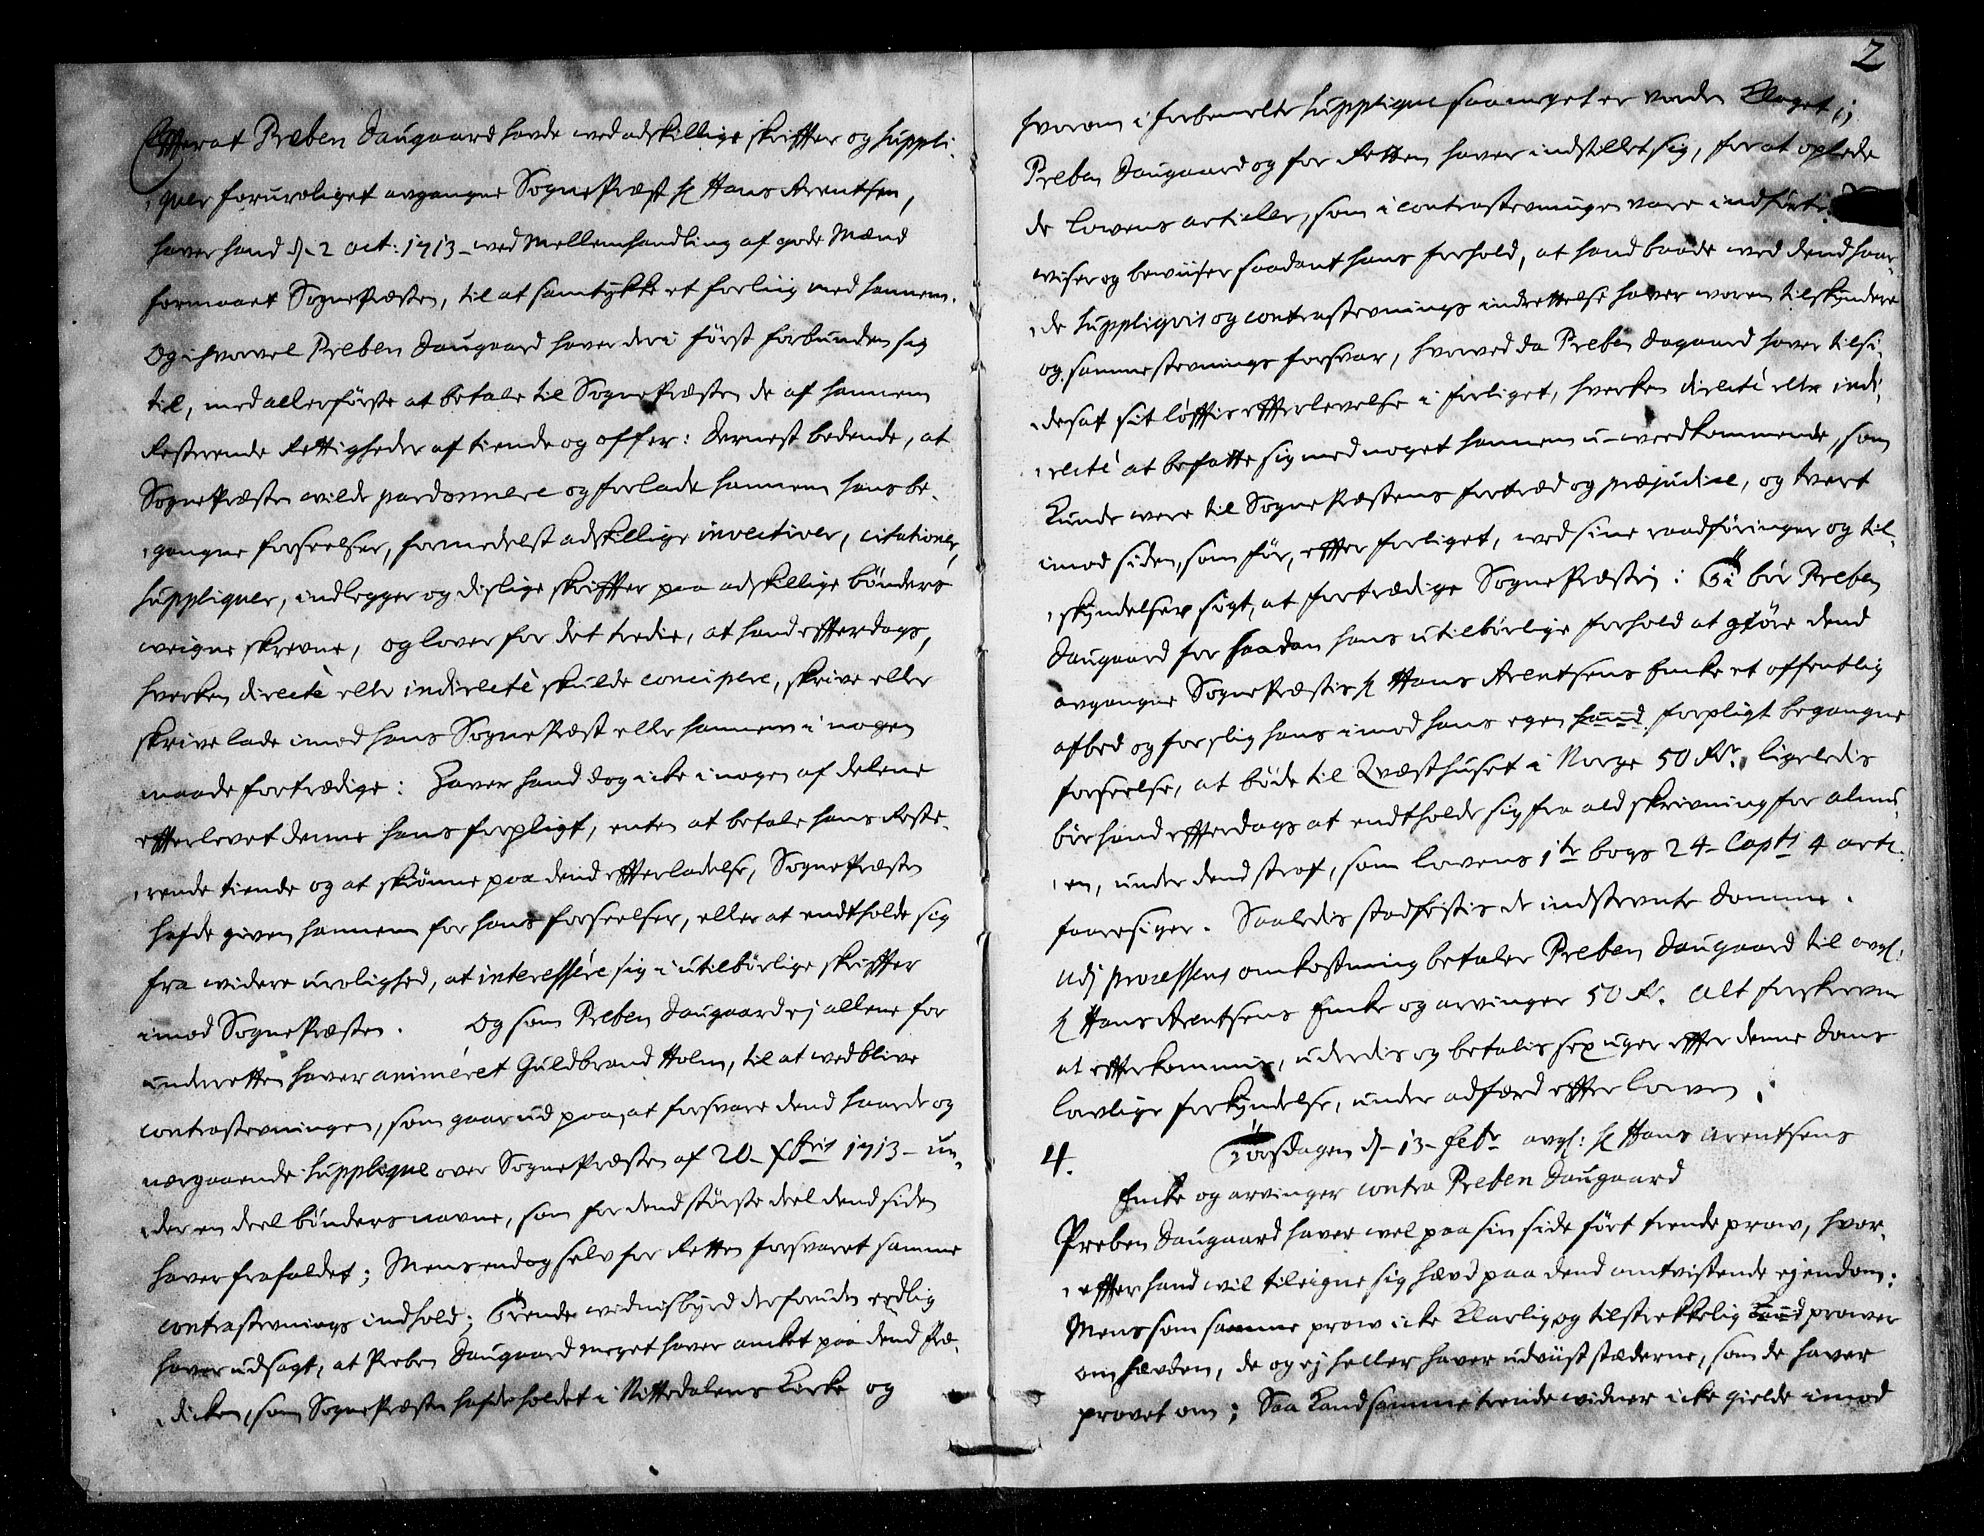 Effterat Preben Daugaard hafde wed adskillige skriffter og suppli-
quer foruroliget afgangne SognePræst H Hans Arentsen,
hafver hand d. 2 oct: 1713 wed Mellemhandling af gode Mænd
formaaet SognePræsten, til at samtykke et forliig med hannem.
Og ihvorvel Preben Daugaard hafver deri først forbunden sig
til, med allerførste at betale til SognePræsten de af hannem
Resterende Rettigheder af tiende og offer: Dernest bedende, at
SognePræsten wilde pardonnere og forlade hannem hans be-
gangne forseelser, formedelst adskillige invectiver, citationer,
suppliquer, indlegger og dislige skriffter paa adskillige bønders
weigne skrevne, og lover for det tredie, at hand effterdags,
hverken directè eller indirectè skulde concipere, skrive eller
skrive lade imod hans SognePræst eller hannem i nogen
maade fortrædige: Haver hand dog icke i nogen af delene
effterlevet denne hans forpligt, enten at betale hans Reste-
rende tiende og at skiønne paa dend effterladelse, SognePræsten
hafde given hannem for hans forseelser, eller at endtholde sig
fra widere urolighed, at interessére sig i utilbørlige skriffter
imod SognePræsten. Og som Preben Daugaard ej allene for
underretten haver animéret Guldbrand Holm, til at wedblive
contrastevningen, som gaar ud paa, at forsvare dend haarde og
nærgaaende supplique over SognePræsten af 20 Xbris 1713 un-
der en deel bønders navne, som for dend største deel dend siden
haver frafaldet; Mens endog selv for Retten forsvaret samme
contrastevnings indhold; Trende widnisbyrd derforuden eedlig
haver udsagt, at Preben Daugaard meget haver anket paa dend Præ-
dicken, som SognePræsten hafde holdet i Nittedalens Kircke og
2
hvorom i forbemelte supplique saa meget er worden klaget;
Preben Daugaard og for Retten haver indstillet sig, for at oplede
de Lovens articler, som i contrastevningen vare indførte
wiser og bewiiser saadant hans forhold, at hand baade wed dend haar-
de suppliqvis og contrastevnings indrettelse haver waren tilskyndere
og samme stevnings forsvar, hvorved da Preben Dagaard haver tilsi-
desat sit løfftis effterlevelse i forliget, hverken directé eller indi-
recté at befatte sig med noget hannem u-wedkommende, som
kunde were til SognePræstens fortræd og præjudice, og tvert
imod siden, som før, effter forliget, wed sine raadføringer og til-
skyndelser søgt, at fortrædige SognePræsten: Ti bør Preben
Daugaard for saadan hans utilbørlige forhold at giøre dend
afgangne SognePræstis H Hans Arentsens Encke et offentlig
afbed og for slig hans imod hans egen haand forpligt begangne
forseelse, at bøde til Qvæsthuset i Norge 50 Rdr. ligeledis
bør hand effterdags at endtholde sig fra ald skrivning for almu-
en, under dend straf, som Lovens 1te bogs 24 Capts 4 artic:
foaresiger. Saaledis stadfestis de indstevnte Domme.
Udj processens omkostning betaler Preben Daugaard til afg:
H Hans Arentsens Encke og arvinger 50 R. Alt forskrevne
at effterkommis, uderedis og betalis sex uger effter denne Doms
lovlige forkyndelse, under adfærd effter Loven.
4. Tørsdagen d. 13 Febr afg: H Hans Arentsens
Encke og arvinger contra Preben Daugaard
Preben Daugaard haver wel paa sin side ført trende prow, hvor-
effter hand wil tileigne sig hævd paa dend omtvistende eiendom:
Mens som samme prow icke klarlig og tilstrekkelig kand prower
om hævden, de og ej heller haver udviist stæderne, som de haver
provet om; Saa kand samme trende widner icke gielde imod